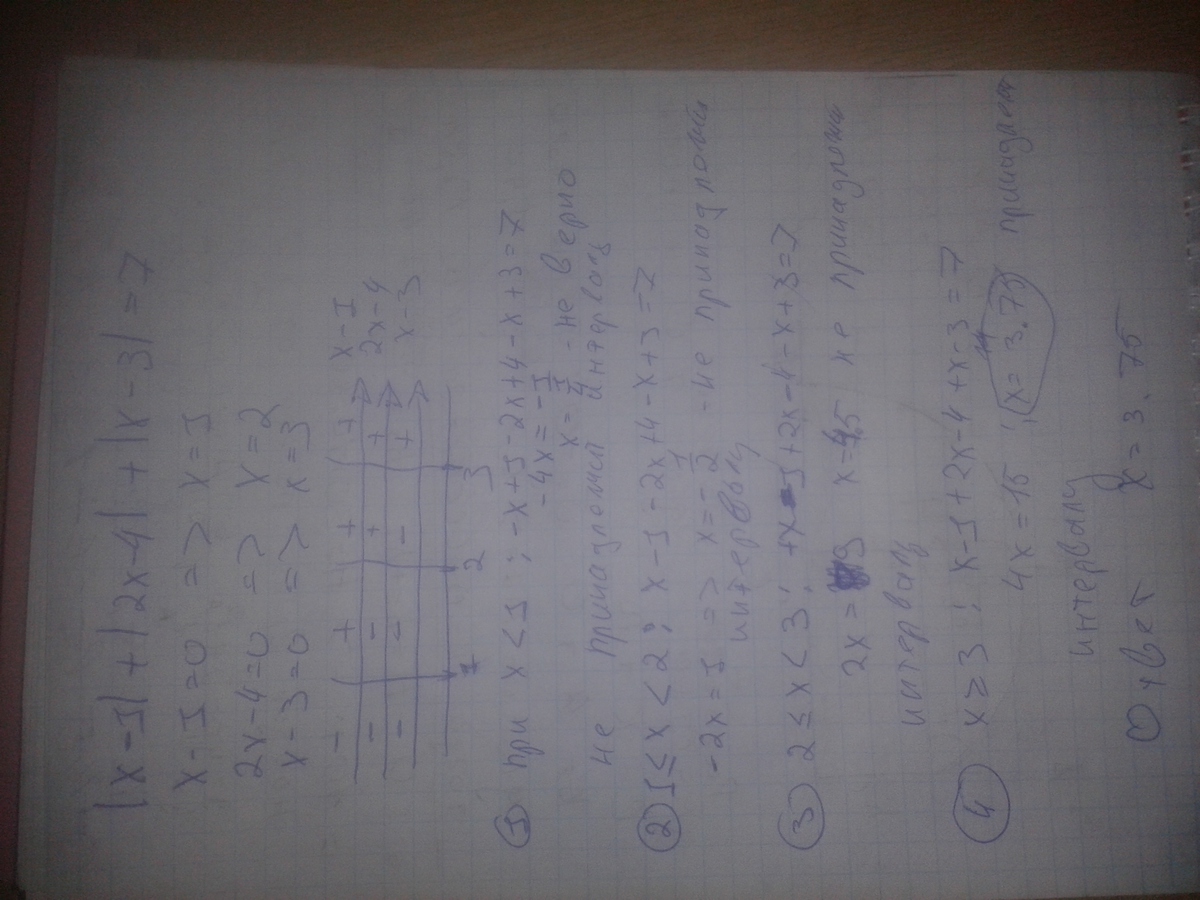 |x-1| + |2x-4| + |x-3| = 7
x-1=0 => x=1
2x-4=0 => x=2
x-3=0 => x=3
- + + + x-1
- - + + 2x-4
- - - + x-3
1 2 3
① при x<1 ; -x+1-2x+4-x+3=7
-4x=-1
x=1/4 -не верно
не принадлежит интервалу
② 1≤x<2; x-1-2x+4-x+3=7
-2x=1 => x=-1/2 -не принадлежит
интервалу
③ 2≤x<3; +x-1+2x-4-x+3=7
2x=9 x=4.5 не принадлежит
интервалу
④ x≥3; x-1+2x-4+x-3=7
4x=15 ; x=3.75 принадлежит
интервалу
Ответ x=3.75